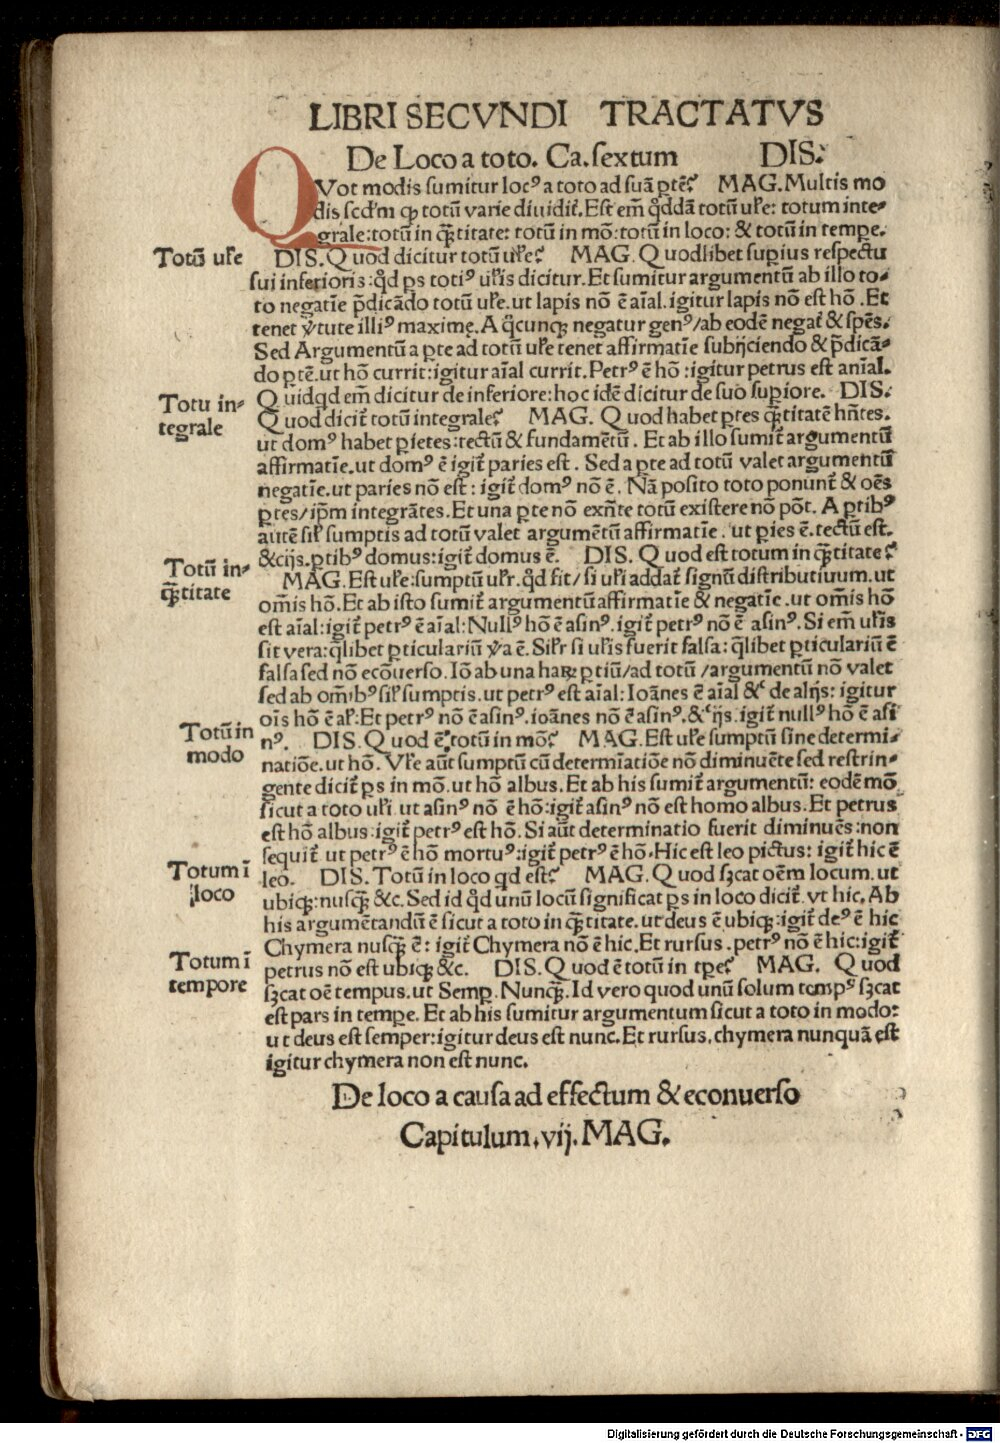 LIBRI SECVNDI TRACTATVS
De Loco a toto. Ca. sextum DIS:
QVot modis sumitur locꝰ a toto ad suā ꝑtē? MAG. Multis mo
dis scd'm ꝙ totū varie diuidit̄. Est em̄ q̊ddā totū ulʼe: totum inte-
grale: totū in q̄ꝫtitate: totū in mō: totū in loco: & totū in tempe.
Totū ulʼe
DIS. Quod dicitur totū ulʼe? MAG. Quodlibet supius respectu
sui inferioris: q̊d ps totiꝰ ulʼis dicitur. Et sumitur argumentū ab illo to-
to negatīe p̄dicādo totū ulʼe. ut lapis nō ē aīal. igitur lapis nō est hō. Et
tenet v̓tute illiꝰ maxime. A q̊cunqꝫ negatur genꝰ/ab eodē negat̄ & spēs.
Sed Argumentū a ꝑte ad totū ulʼe tenet affirmatīe subijciendo & p̄dicā-
do ꝑtē. ut hō currit: igitur aīal currit. Petrꝰ ē hō: igitur petrus est anīal.
Quidqd em̄ dicitur de inferiore: hoc idē dicitur de suo supiore. DIS:
Totu in-
tegrale
Quod dicit̄ totū integrale? MAG. Quod habet ꝑtes q̄ꝫtitatē hn̄tes.
ut domꝰ habet ꝑietes: tectū & fundamētū. Et ab illo sumit̄ argumentū
affirmatīe. ut domꝰ ē igit̄ paries est. Sed a ꝑte ad totū valet argumentū
negatīe. ut paries nō est: igit̄ domꝰ nō ē. Nā posito toto ponunt̄ & oēs
ꝑtes/ip̄m integrātes. Et una ꝑte nō exn̄te totū existere nō pōt. A ꝑtibꝰ
autē silʼ sumptis ad totū valet argumētū affirmatīe. ut ꝑies ē. tectū est.
&cijs. ꝑtibꝰ domus: igit̄ domus ē. DIS. Quod est totum in q̄ꝫtitate?
Totū in-
q̄ꝫtitate
MAG. Est ulʼe: sumptū ulʼr. q̊d fit/si ulʼi addat̄ signū distributiuum. ut
om̄is hō. Et ab isto sumit̄ argumentū affirmatīe & negatīe. ut om̄is hō
est aīal: igit̄ petrꝰ ē aīal: Nullꝰ hō ē asinꝰ. igit̄ petrꝰ nō ē asinꝰ. Si em̄ ulʼis
sit vera: q̄libet ꝑticulariū v̓a ē. Silʼr si ulʼis fuerit falsa: q̄libet ꝑticulariū ē
falsa sed nō ecōuerso. Iō ab una haꝝ ꝑtiū/ad totū/argumentū nō valet
sed ab om̄ibꝰ silʼ sumptis. ut petrꝰ est aīal: Ioānes ē aīal &c de alijs: igitur
oīs hō ē alʼ: Et petrꝰ nō ē asinꝰ. ioānes nō ē asinꝰ. &cijs. igit̄ nullꝰ hō ē asi
Totū in
modo
nꝰ. DIS. Quod ē totū in mō? MAG. Est ulʼe sumptū sine determi-
natiōe. ut hō. Vlʼe aūt sumptū cū determīatiōe nō diminuēte sed restrin-
gente dicit̄ ps in mō. ut hō albus. Et ab his sumit̄ argumentū: eodē mō
sicut a toto ulʼi ut asinꝰ nō ē hō: igit̄ asinꝰ nō est homo albus. Et petrus
est hō albus: igit̄ petrꝰ est hō. Si aūt determinatio fuerit diminuēs: non
sequit̄ ut petrꝰ ē hō mortuꝰ: igit̄ petrꝰ ē hō. Hic est leo pictus: igit̄ hic ē
Totum ī
loco
leo. DIS. Totū in loco qd est? MAG. Quod sꝫcat oēm locum. ut
ubiqꝫ: nusq̄ꝫ &c. Sed id q̊d unū locū significat ps in loco dicit̄. vt hic. Ab
his argumētandū ē sicut a toto in q̄ꝫtitate. ut deus ē ubiqꝫ: igit̄ deꝰ ē hic
Chymera nusq̄ꝫ ē: igit̄ Chymera nō ē hic. Et rursus. petrꝰ nō ē hic: igit̄
Totum ī
tempore
petrus nō est ubiqꝫ &c. DIS. Quod ē totū in tꝑe? MAG. Quod
sꝫcat oē tempus. ut Semꝑ. Nunq̄ꝫ. Id vero quod unū solum tempꝰ sꝫcat
est pars in tempe. Et ab his sumitur argumentum sicut a toto in modo:
ut deus est semper: igitur deus est nunc. Et rursus. chymera nunquā est
igitur chymera non est nunc.
De loco a causa ad effectum & econuerso
Capitulum. vij. MAG.
Digitalisierung gefördert durch die Deutsche Forschungsgemeinschaft - DFG